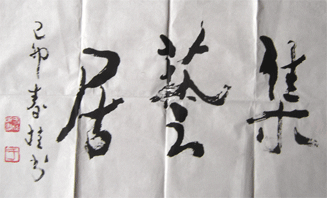 集藝居
己卯春桂书